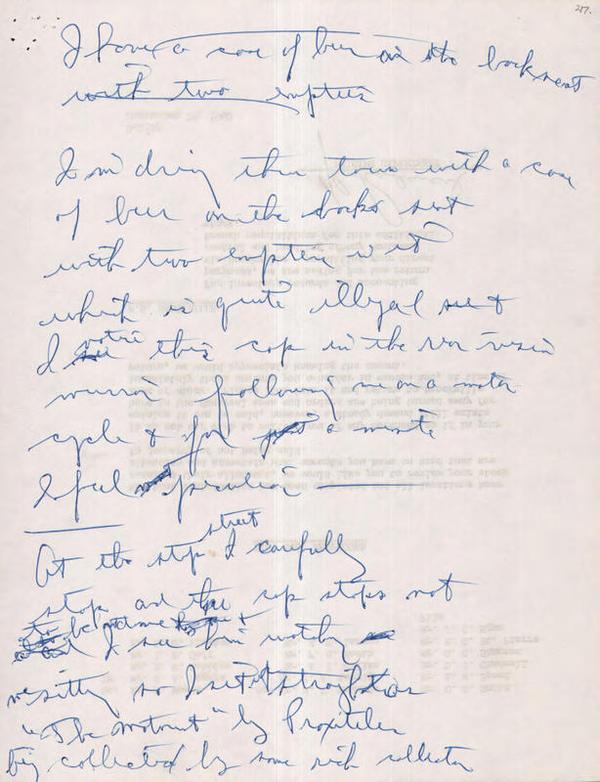 217.
I have a case of beer on the back seat
with two empties
I'm driving thru town with a case
of beer on the back seat
with two empties in it
which is quite illegal see &
I notice this cop in the rear vision
mirror following me on a motor
cycle & for a minute
I feel peculiar
street
At the stop I carefully
stop and the cop stops not
I see him watching
me sitting so I sit straighter
"The motorist" by Praxiteles
being collected by some rich collector